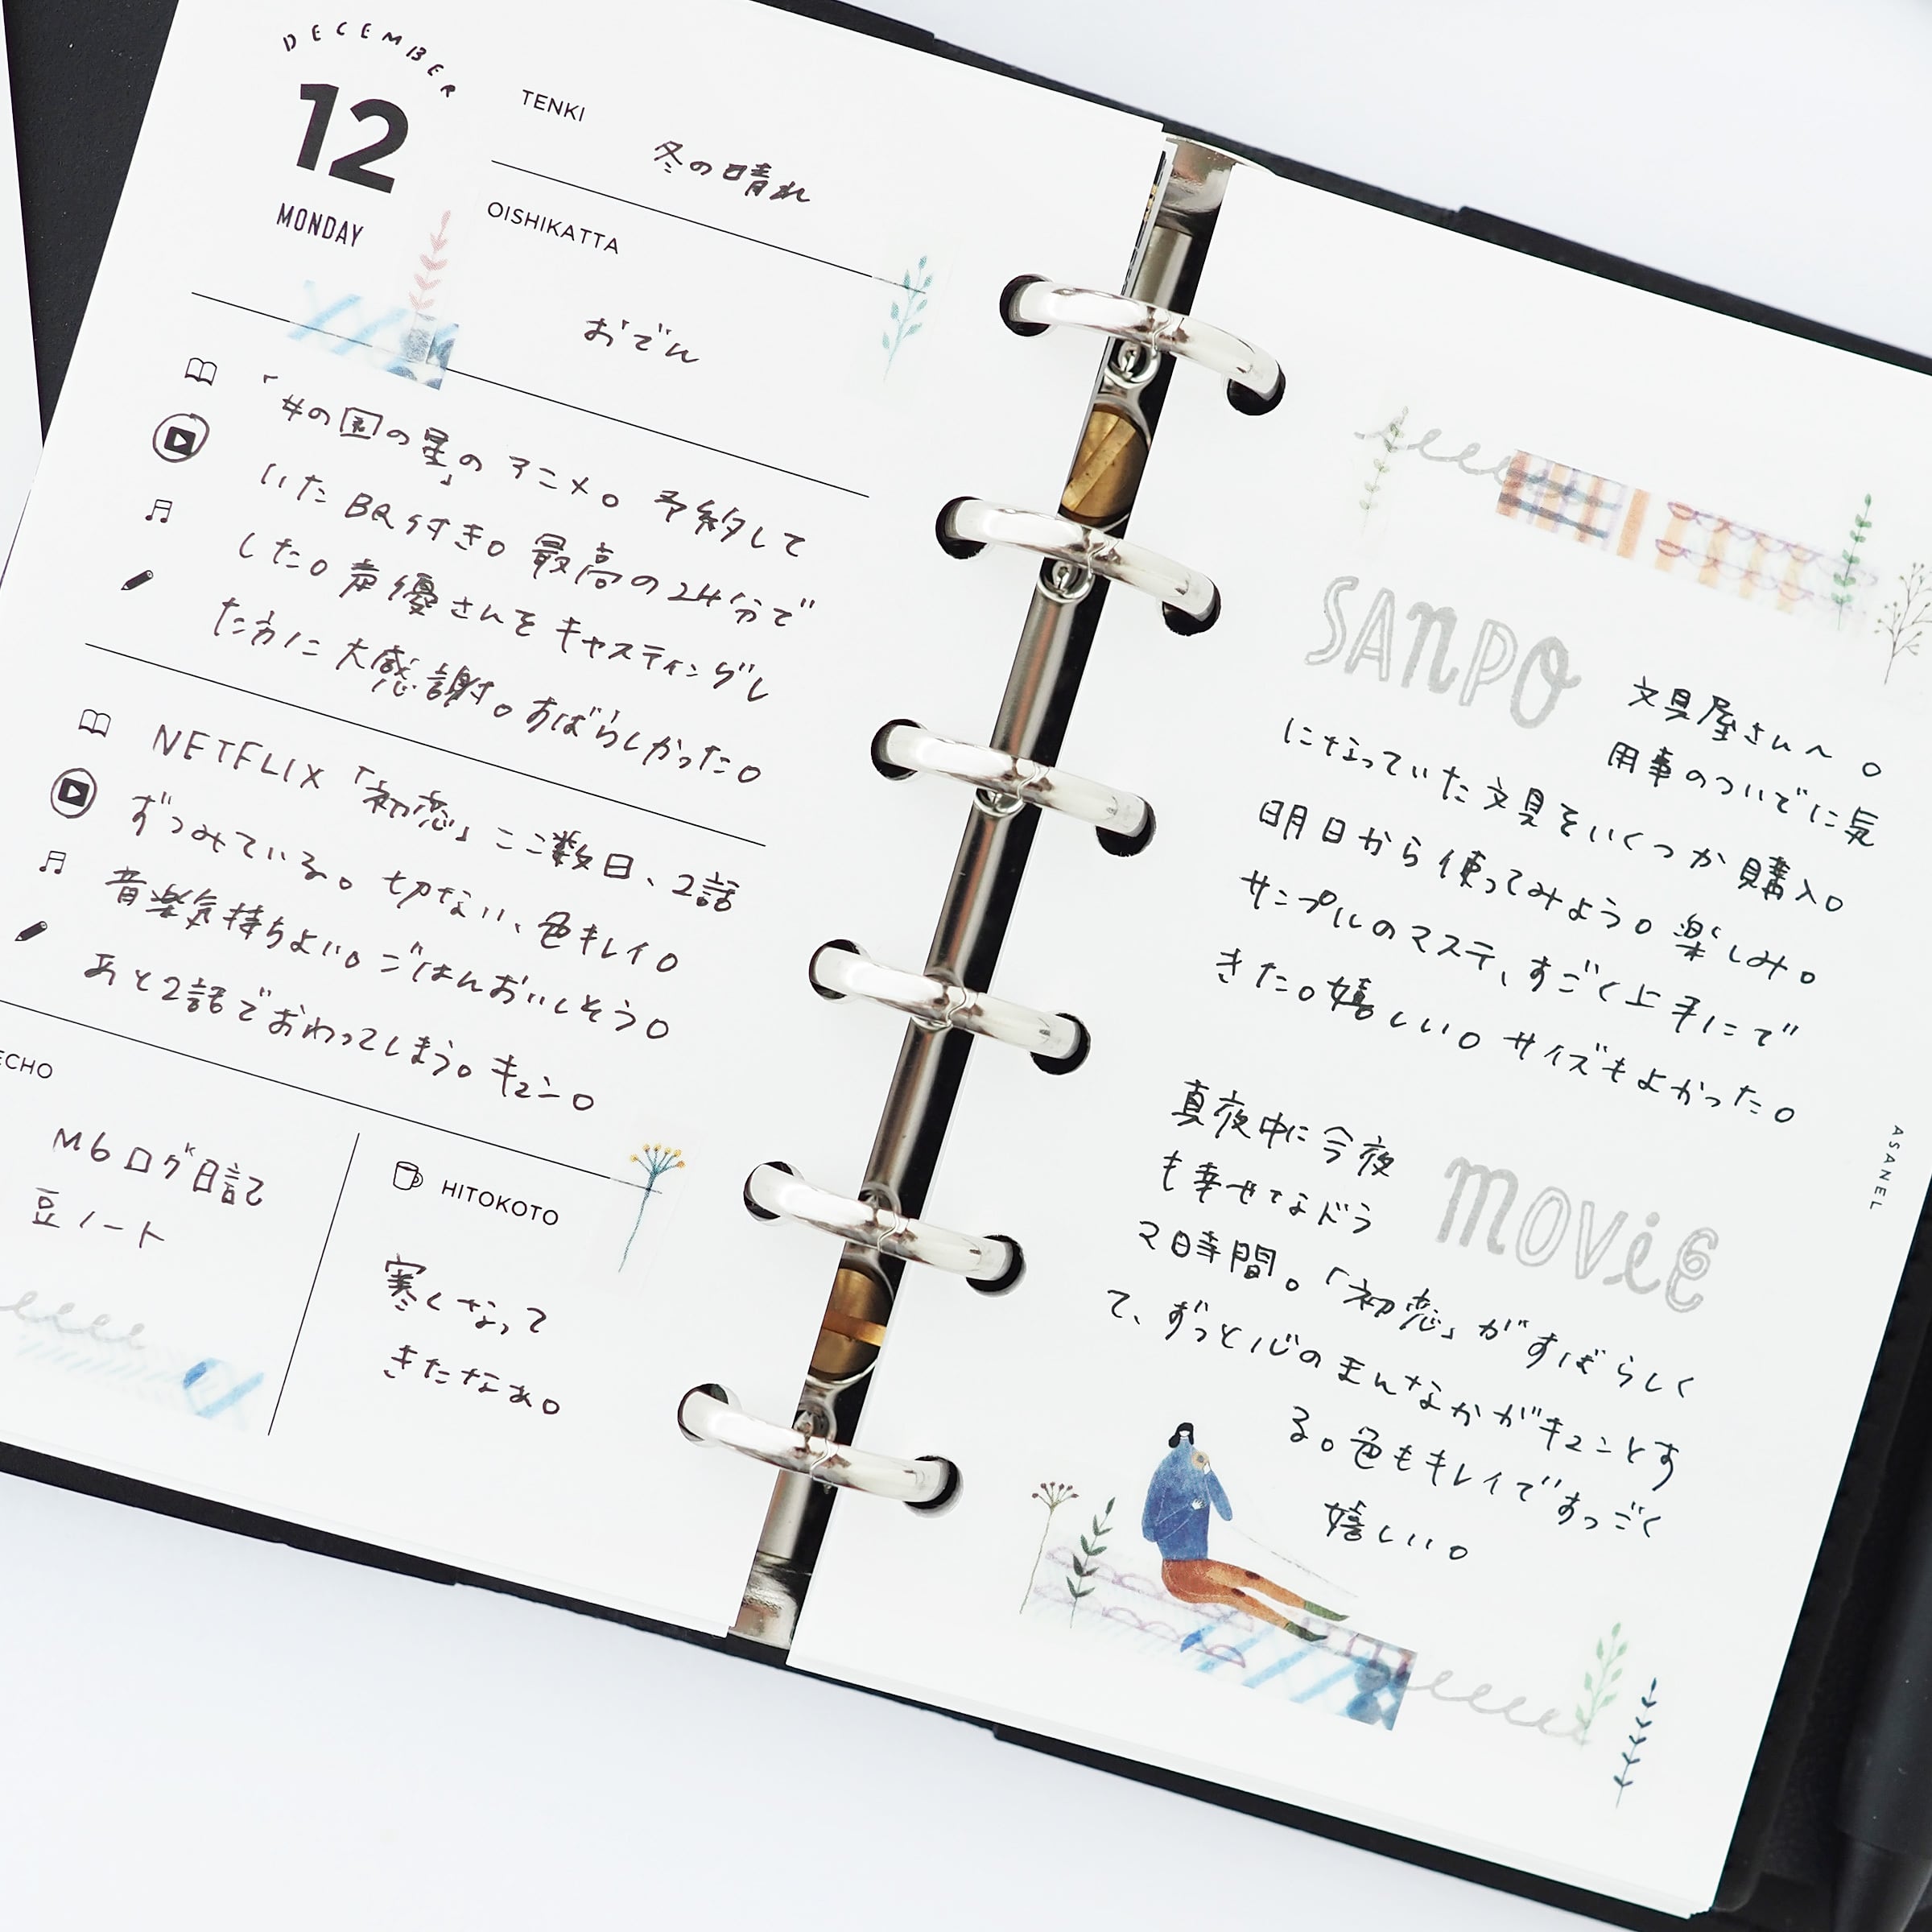 DECEMBER
12
MONDAY
TENKI
冬の晴れ
OISHIKATTA
おでん
「女の園の星」の アニメ。予約して
いた BR付き。最高の24分で
した。声優さんを キャスティングし
た方に 大感謝。すばらしかった。
NETFLIX 「初恋」ここ数日、2話
ずつみている。切ない、色キレイ。
音楽気持ちよい。ごはんおいしそう。
あと2話でおわってしまう。キュン。
ECHO
M6 ログ日記
豆ノート
HITOKOTO
寒くなって
きたなぁ。
SANPO
文具屋さんへ。
用事のついでに気
になっていた文具をいくつか購入。
明日から使ってみよう。楽しみ。
サンプルのマステ、すごく上手にで
きた。嬉しい。サイズもよかった。
MOVIE
真夜中に今夜
も幸せなドラ
マ時間。「初恋」がすばらしく
て、ずっと心のまんなかがキュンとす
る。色もキレイですっごく
嬉しい。
ASANEL